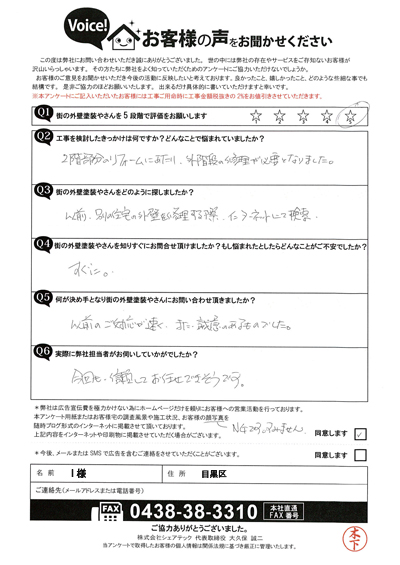 Voice!
お客様の声をお聞かせください
この度は弊社にお問い合わせいただき誠にありがとうございました。世の中には弊社の存在やサービスをご存知ないお客様が
沢山いらっしゃいます。その方たちに弊社をよく知っていただくためのアンケートにご協力いただけないでしょうか。
お客様のご意見をお聞かせいただき今後の活動に反映したいと考えております。良かったこと、嬉しかったこと、どのような些細な事でも
結構です。是非ご協力のほどお願いいたします。出来るだけ具体的に書いていただけますと幸いです。
※本アンケートにご記入いただいたお客様には工事ご用命時に工事金額税抜きの2%をお値引きさせていただきます。
Q1 街の外壁塗装やさんを5段階で評価をお願いします ☆ ☆ ☆ ☆ ☆
Q2 工事を検討したきっかけは何ですか?どんなことで悩まれていましたか?
2階部分のリフォームにあたり、外階段の修理が必要となりました。
Q3 街の外壁塗装やさんをどのように探しましたか?
以前、別の住宅の外壁を修理する際、インターネットにて検索。
Q4 街の外壁塗装やさんを知りすぐにお問合せ頂けましたか?もし悩まれたとしたらどんなことがご不安でしたか?
すぐに。
Q5 何が決め手となり街の外壁塗装やさんにお問い合わせ頂きましたか?
以前のご対応が速く、また、誠意のあるものでした。
Q6 実際に弊社担当者がお伺いしていかがでしたか?
今回も、信頼してお任せできそうです。
*弊社は広告宣伝費を極力かけない為にホームページだけを頼りにお客様への営業活動を行っております。
本アンケート用紙またはお客様宅の調査風景や施工状況、お客様の顔写真を
随時ブログ形式のインターネットに掲載させて頂いております。
上記内容をインターネットや印刷物に掲載させていただく場合がございます。
NGです。すみません。
同意します ✓
*今後、メールまたはSMSで広告を含むご連絡をさせていただくことがございます。 同意します
名前 I様 住所 目黒区
ご連絡先(メールアドレスまたは電話番号)
FAX 0438-38-3310 本社直通 FAX番号
ご協力ありがとうございました。
株式会社シェアテック 代表取締役 大久保 誠二
当アンケートで取得したお客様の個人情報は関係法規に基づき厳正に管理いたします。
木下